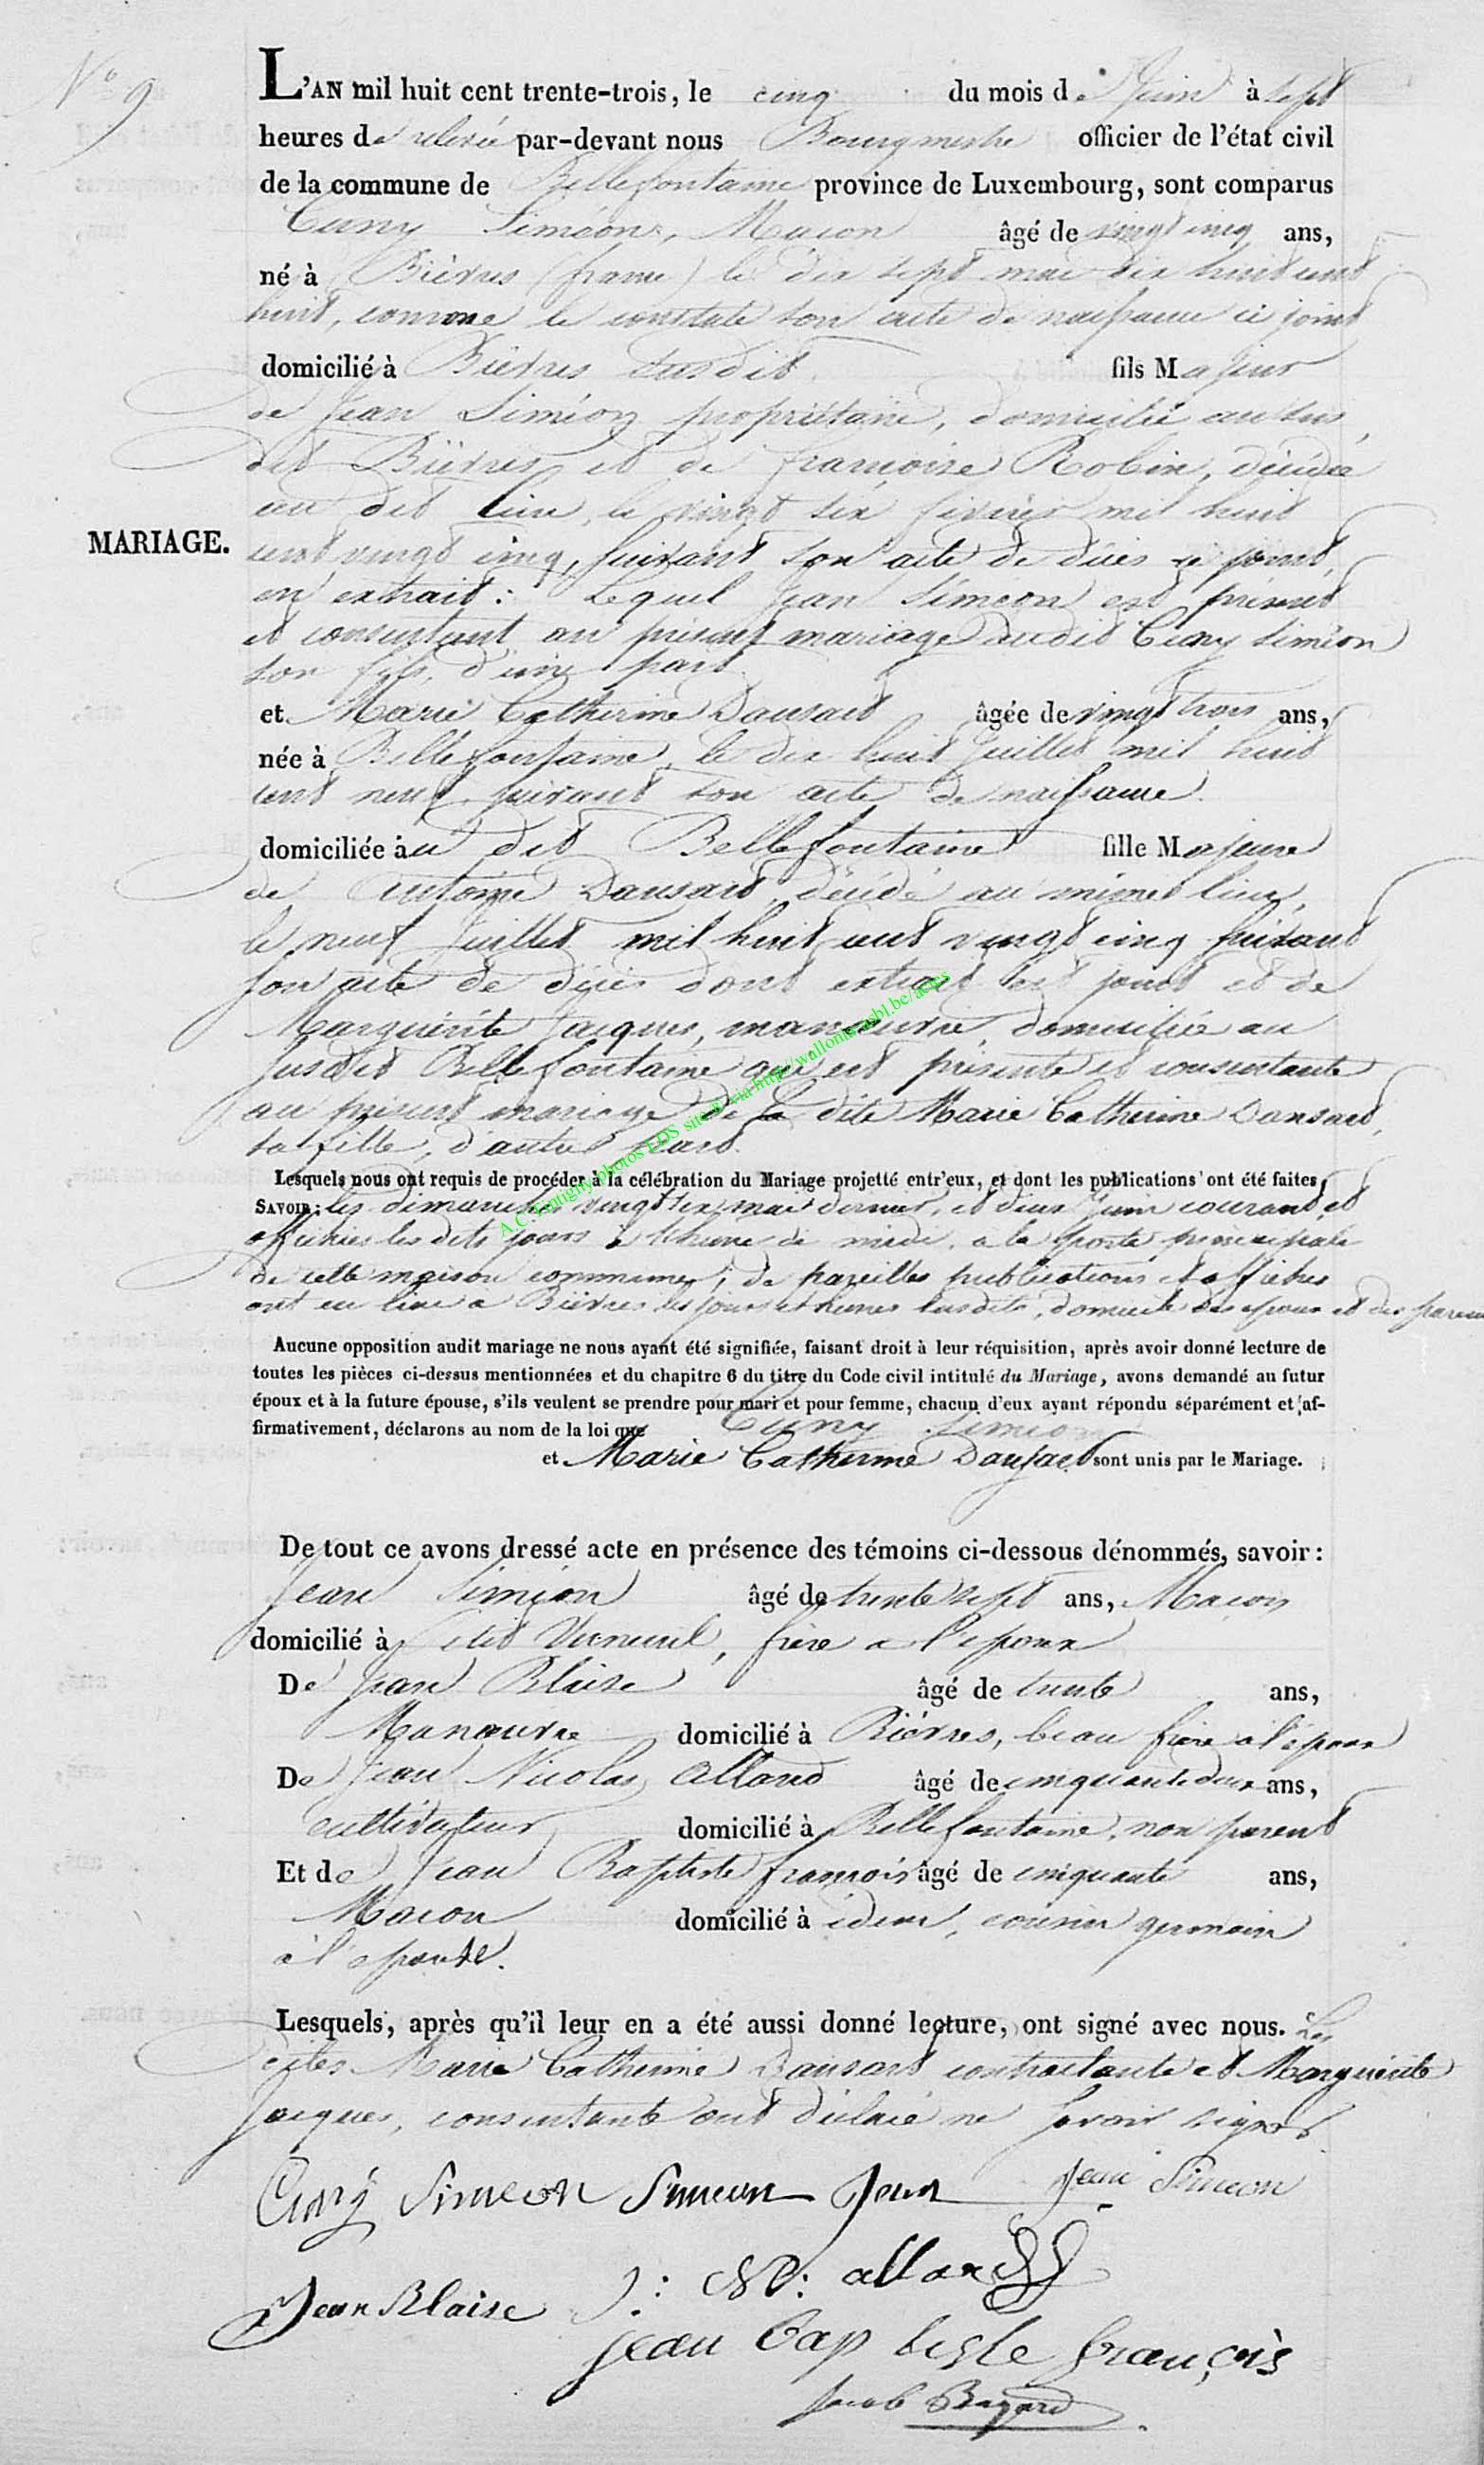 N° 9
L'AN mil huit cent trente-trois, le cinq du mois de Juin à sept
heures de relevée par-devant nous Bourgmestre officier de l'état civil
de la commune de Bellefontaine province de Luxembourg, sont comparus
Cuny Siméon, Macon âgé de vingt cinq ans,
né à Bièvres (france) le dix sept mai dix huit cent
huit, comme le constate son acte de naissance ci joint
domicilié à Bièvres susdit fils Majeur
de Jean Siméon propriétaire, domicilié au sus
dit Bièvres et de françoise Robin, décédée
au dit lieu, le vingt six février mil huit
cent vingt cinq, suivant son acte de décès ci joint,
en extrait : Lequel Jean Siméon est présent
et consentant au présent mariage dudit Cuny Siméon
son fils, d'une part.
MARIAGE.
et Marie Catherine Dansart âgée de vingt trois ans,
née à Bellefontaine, le dix huit Juillet mil huit
cent neuf, suivant son acte de naissance.
domiciliée au dit Bellefontaine fille Majeure
de Antoine Dansart, décédé au même lieu,
le neuf Juillet mil huit cent vingt cinq suivant
son acte de décès dont extrait est joint et de
Marguérite Jacques, manœuvre, domiciliée au
susdit Bellefontaine qui est présente et consentante
au présent mariage de la dite Marie Catherine Dansart,
sa fille, d'autre part.
Lesquels nous ont requis de procéder à la célébration du Mariage projetté entr'eux, et dont les publications ont été faites,
SAVOIR : les dimanches vingt six mai dernier, et deux Juin courant, et
affichées les dits jours à l'heure de midi, a la porte principale
de cette maison commune ; de pareilles publications et affiches
ont eu lieu a Bièvres les jours et heures susdits, domicile des epoux et des parents
Aucune opposition audit mariage ne nous ayant été signifiée, faisant droit à leur réquisition, après avoir donné lecture de
toutes les pièces ci-dessus mentionnées et du chapitre 6 du titre du Code civil intitulé du Mariage, avons demandé au futur
époux et à la future épouse, s'ils veulent se prendre pour mari et pour femme, chacun d'eux ayant répondu séparément et af-
firmativement, déclarons au nom de la loi que Cuny Siméon
et Marie Catherine Dansart sont unis par le Mariage.
De tout ce avons dressé acte en présence des témoins ci-dessous dénommés, savoir :
Jean Siméon âgé de trente sept ans, Macon
domicilié à Petit Verneuil, frère a l'epoux
De Jean Blaise âgé de trente ans,
Manœuvre domicilié à Bièvres, beau frère a l'epoux
De Jean Nicolas Allard âgé de cinquante deux ans,
cultivateur domicilié à Bellefontaine, non parent
Et de Jean Baptiste françois âgé de cinquante ans,
Macon domicilié à idem, cousin germain
à l'epouse.
Lesquels, après qu'il leur en a été aussi donné lecture, ont signé avec nous. Les
dites Marie Catherine Dansart contractante et Marguerite
Jacques, consentante ont déclaré ne savoir signer
Cuny Simeon Simeon Jean Jean Simeon
Jean Blaise J: N: allard
jean baptiste françois
Jacob Bayard
A.C. Tintigny photos LDS site & via http://wallonia-asbl.be/actes